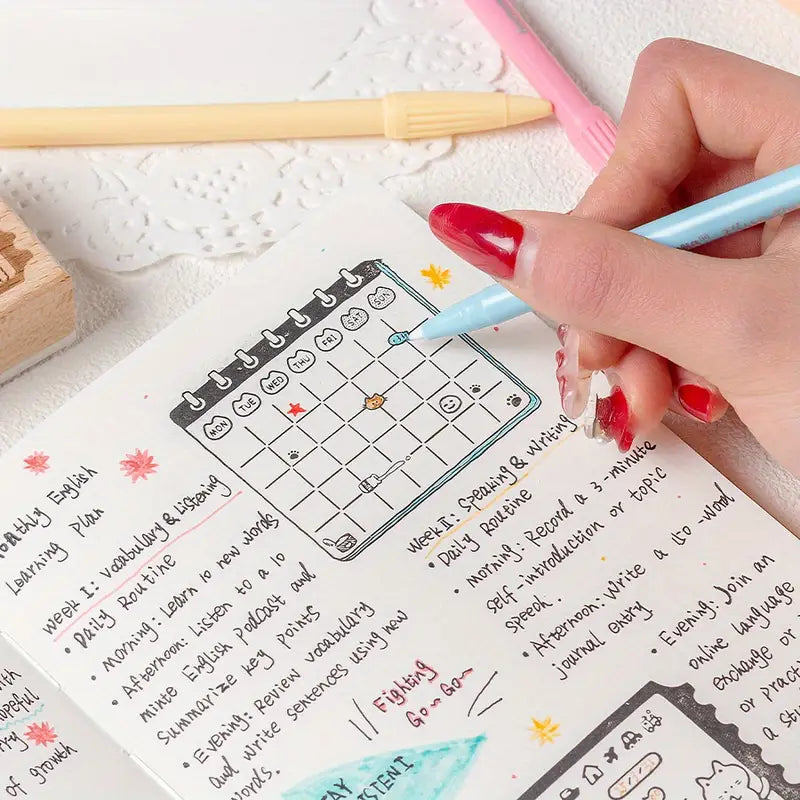 MON
TUE
WED
THU
FRI
SAT
SUN
Monthly English
Learning Plan
Week I: Vocabulary & Listening
• Daily Routine
• Morning: Learn 10 new words
• Afternoon: Listen to a 10
minte English podcast and
Summarize key points
• Evening: Review vocabulary
and write sentences using new
words.
Week II: Speaking & Writing
• Daily Routine
• Morning: Record a 3-minute
self-introduction or topic
speech.
• Afternoon: Write a 150-word
journal entry
• Evening: Join an
online language
exchange or
or practi
a stu
Fighting
Go~ Go~
of growth